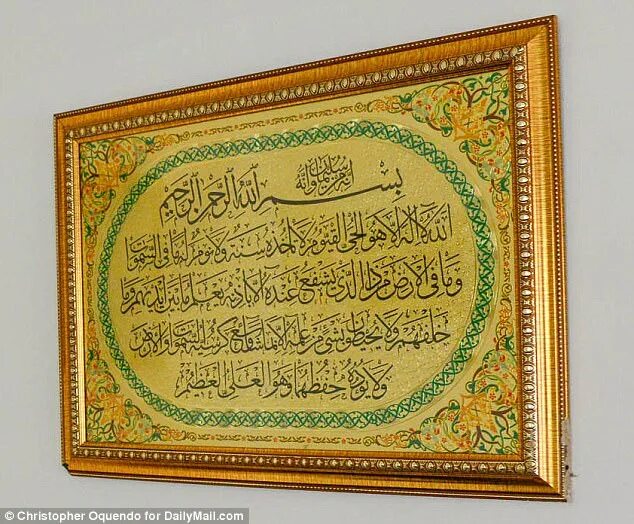 انه من سليمان وانه
بسم الله الرحمن الرحيم
الله لا اله الا هو الحي القيوم لا تأخذه سنة ولا نوم له ما في السموات
وما في الارض من ذا الذي يشفع عنده الا باذنه يعلم ما بين ايديهم وما
خلفهم ولا يحيطون بشيء من علمه الا بما شاء وسع كرسيه السموات والارض
ولا يؤده حفظهما وهو العلي العظيم
© Christopher Oquendo for DailyMail.com